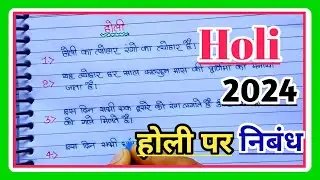 होली
Holi
1) होली का त्योहार रंगों का त्योहार है।
2024
2) यह त्योहार हर साल फाल्गुन मास की पूर्णिमा को मनाया
जाता है।
3) इस दिन सभी एक दूसरे को रंग लगाते हैं
और गले मिलते हैं।
4) इस दिन सभी
होली पर निबंध